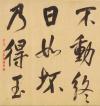 不動終
日如坏
乃得玉